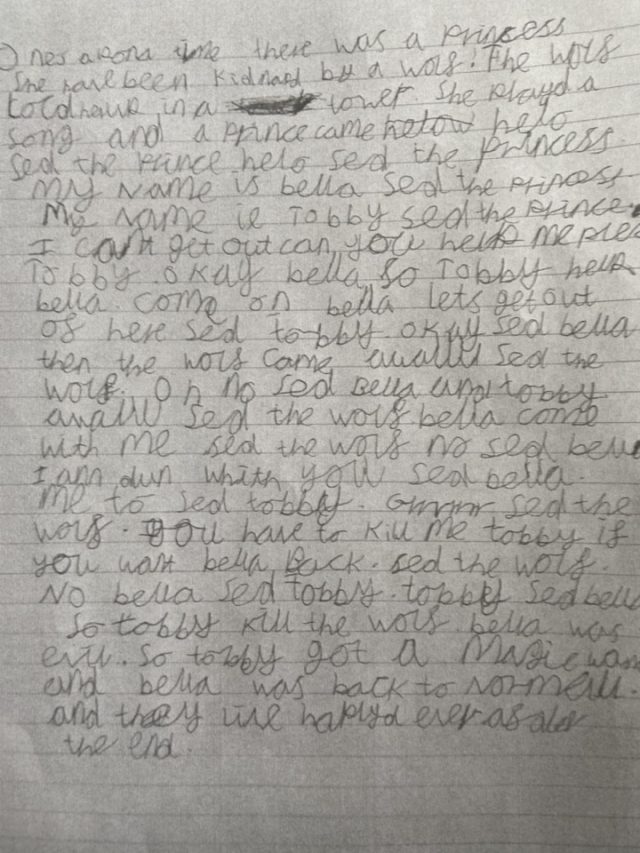 Ones apona time there was a Princess
She have been Kidnapd by a wolf. The wolf
lower. She Playd a
song and a Prince came helow helo
sed the Prince helo sed the Princess
My Name is bella sed the Princess
My name is Tobby sed the Prince.
I can't get out can you help me
Tobby. okay bella so Tobby help
bella. Come on bella lets get out
of here sed tobby okay sed bella
then the wolf came sed the
wolf. Oh no sed Bella and tobby
sed the wolf bella come
with me sed the wolf no sed
I am dun whith you sed bella.
me to sed tobby. Grrrrr sed the
wolf. you have to kill me tobby if
you want bella Back. sed the wolf.
No bella sed tobby. tobby sed bella
So tobby kill the wolf bella was
evil. So tobby got a Magic
and bella was back to normell.
and they live hapyd ever
the end.